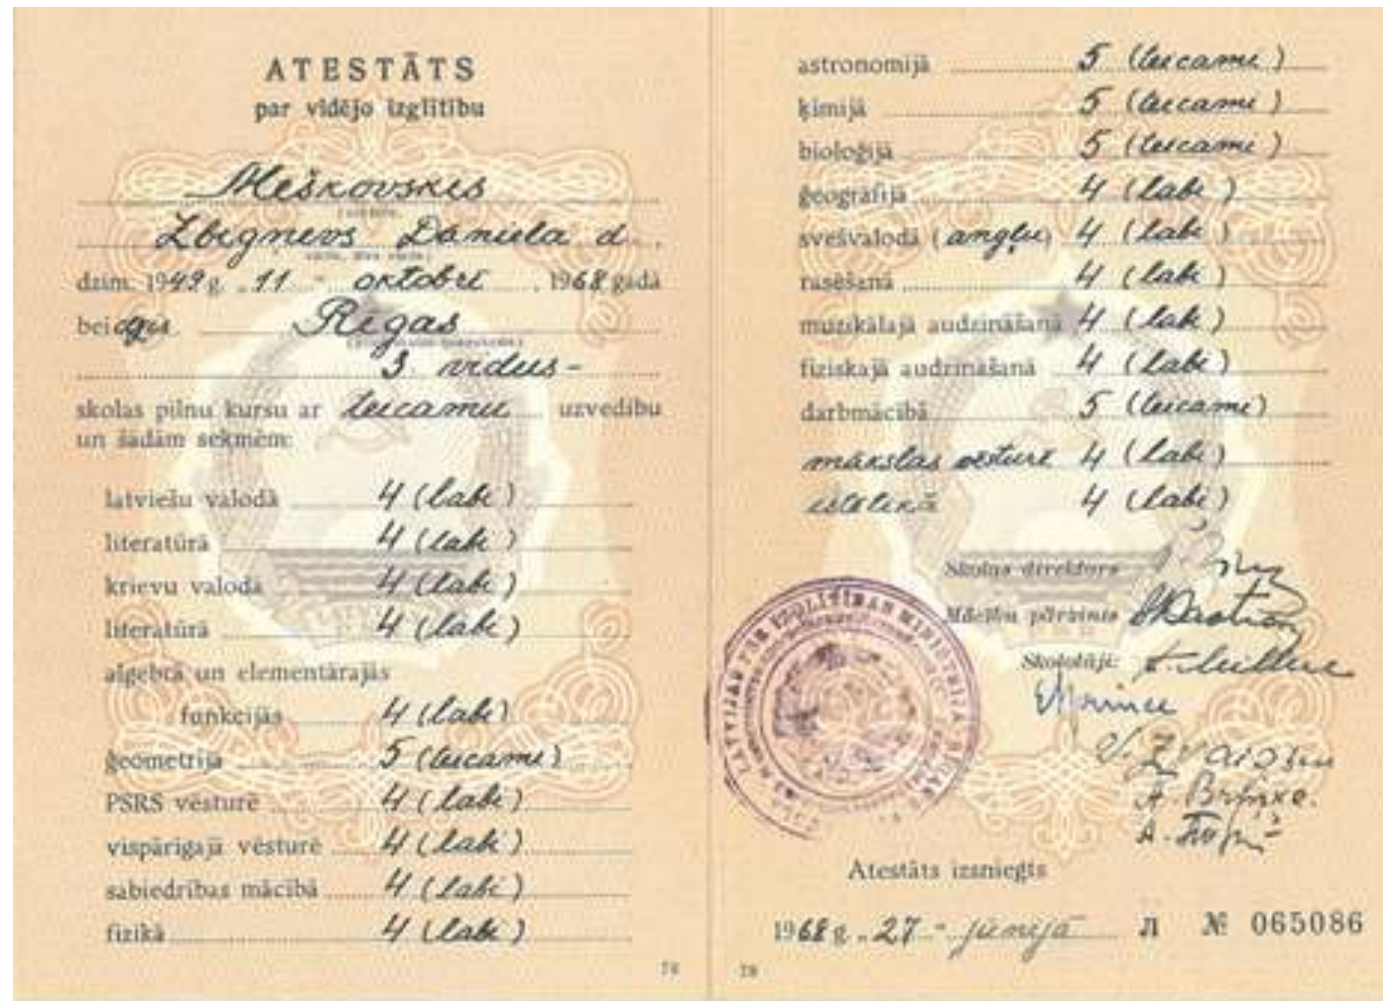 ATESTĀTS
par vidējo izglītību
Meškovskis
Zbigņevs Daniela d.,
dzim. 1949 g. „11" oktobrī, 1968 gadā
beidzis Rīgas
3. vidus-
skolas pilnu kursu ar teicamu uzvedību
un šādām sekmēm:
latviešu valodā 4 (labi)
literatūrā 4 (labi)
krievu valodā 4 (labi)
literatūrā 4 (labi)
algebrā un elementārajās
funkcijās 4 (labi)
ģeometrijā 5 (teicami)
PSRS vēsturē 4 (labi)
vispārīgajā vēsturē 4 (labi)
sabiedrības mācībā 4 (labi)
fizikā 4 (labi)
78
astronomijā 5 (teicami)
ķīmijā 5 (teicami)
bioloģijā 5 (teicami)
ģeogrāfijā 4 (labi)
svešvalodā (angļu) 4 (labi)
rasēšanā 4 (labi)
muzikālajā audzināšanā 4 (labi)
fiziskajā audzināšanā 4 (labi)
darbmācībā 5 (teicami)
mākslas vēsturē 4 (labi)
estētikā 4 (labi)
Skolas direktors
Mācību pārzinis
Skolotāji:
LATVIJAS PSR IZGLĪTĪBAS MINISTRIJA
Atestāts izsniegts
1968 g. „27" jūnijā Л № 065086
78